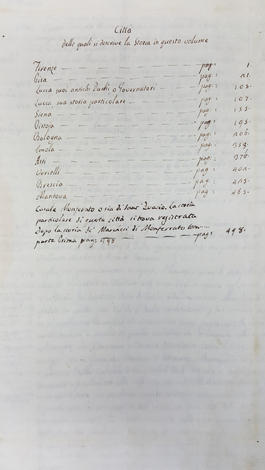 Città
delle quali si descrive la Storia in questo volume
Firenze pag: 1.
Pisa pag:
Lucca suoi antichi Duchi o Governatori pag:
Lucca sua storia particolare pag: 107.
Siena pag:
Pistoja pag: 195.
Bologna pag:
Imola pag:
Asti pag: 376.
Vercelli pag:
Brescia pag:
Mantova pag:
Casale Monferrato o sia di Sant' Evasio. La storia
particolare di questa città si trova registrata
Dopo la storia de' Marchesi di Monferrato
parte Prima pag: 498 pag: 498.